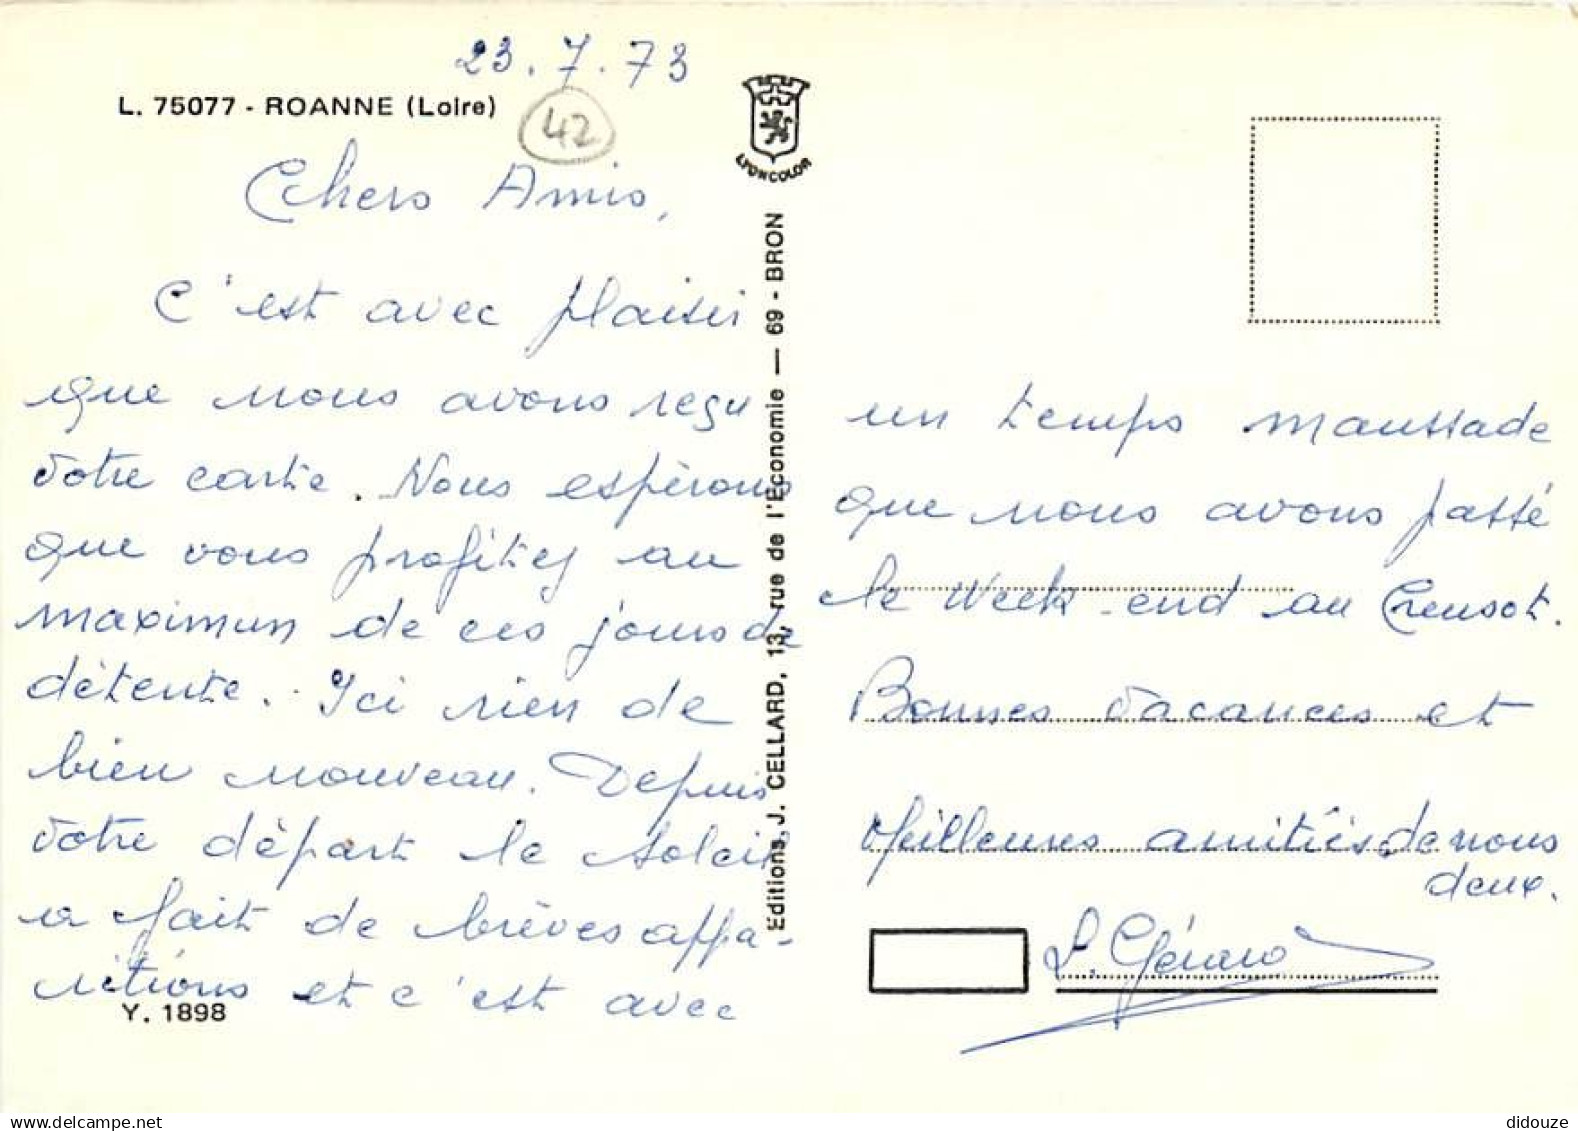 23.7.73
L. 75077 - ROANNE (Loire)
42
LYONCOLOR
Chers Amis,
C'est avec plaisir
que nous avons reçu
votre carte. Nous espérons
que vous profitez au
maximum de ces jours de
détente. Ici rien de
bien nouveau. Depuis
votre départ le soleil
a fait de brèves appa-
ritions et c'est avec
Y. 1898
Editions J. CELLARD, 13, rue de l'Économie — 69 - BRON
un temps maussade
que nous avons passé
le Week-end au Creusot.
Bonnes vacances et
Meilleures amitiés de nous
deux.
Gérard
delcampe.net
didouze